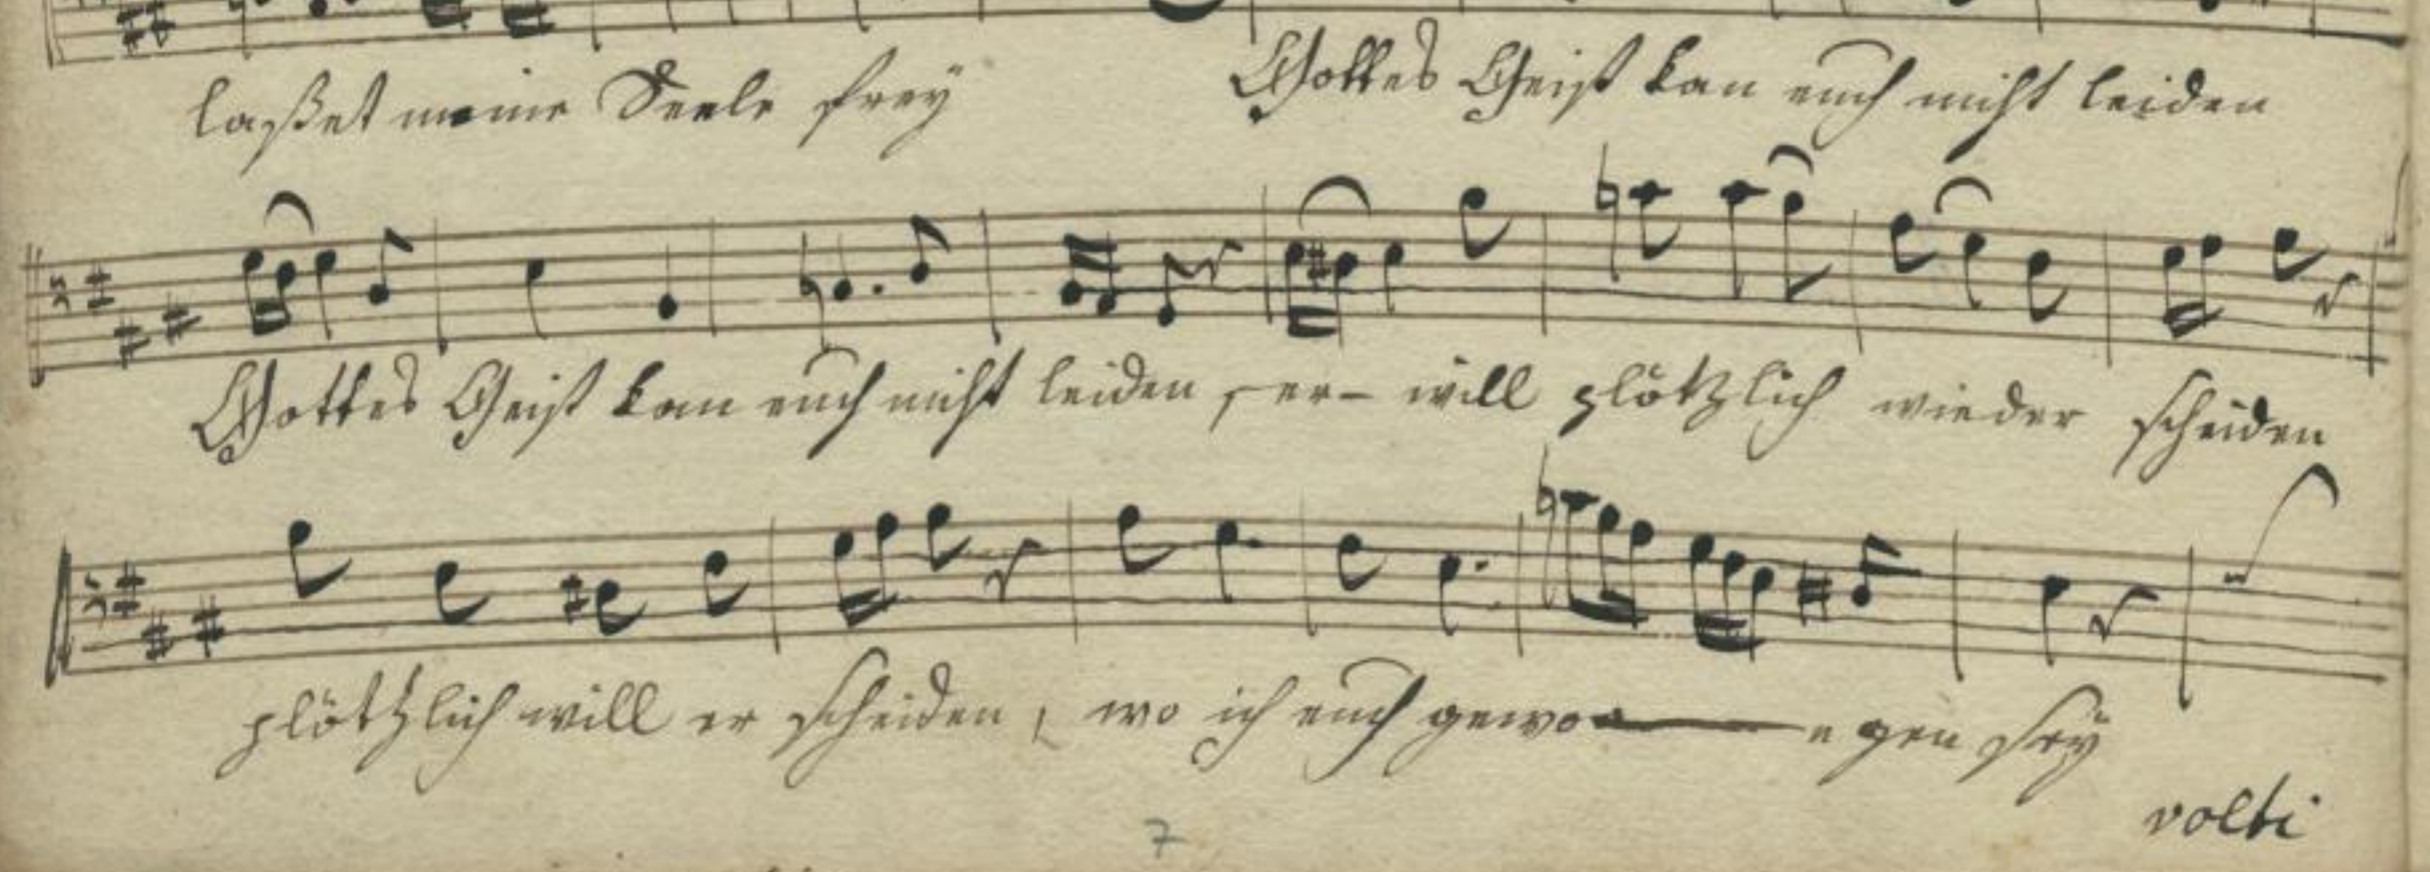 laßet meine Seele frey Gottes Geist kan euch nicht leiden
Gottes Geist kan euch nicht leiden, er- will plötzlich wieder scheiden
plötzlich will er scheiden, wo ich euch gewo——gen sey
volti
7